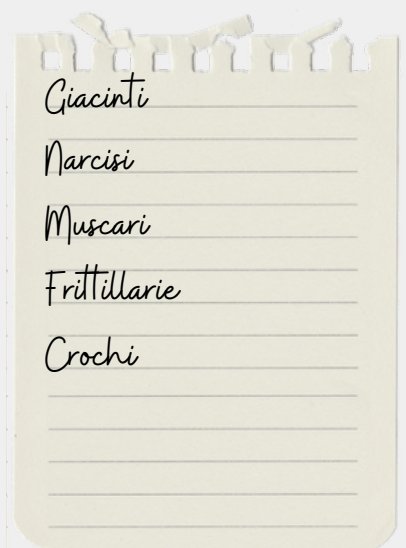 Giacinti
Narcisi
Muscari
Frittillarie
Crochi